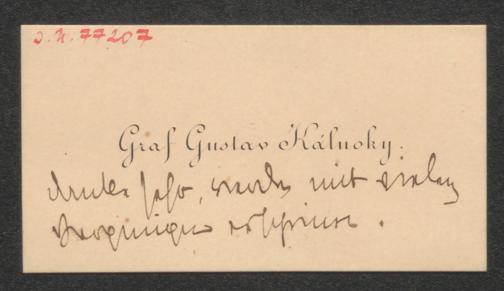 J.N. 77207
Graf Gustav Kálnoky.
danke sehr, werde mit vielem
Vergnügen erscheinen.